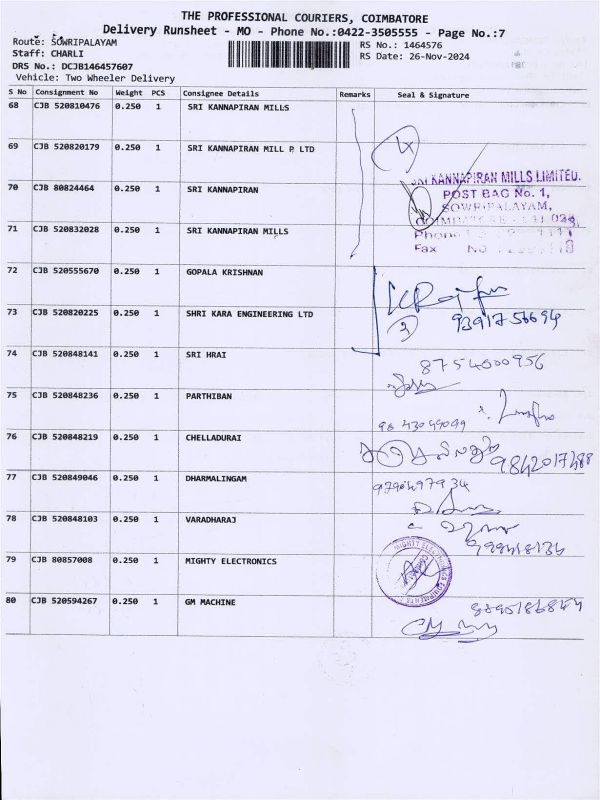 THE PROFESSIONAL COURIERS, COIMBATORE
Delivery Runsheet - MO - Phone No.:0422-3505555 - Page No.:7
Route: SOWRIPALAYAM
RS No.: 1464576
Staff: CHARLI
RS Date: 26-Nov-2024
DRS No.: DCJB146457607
Vehicle: Two Wheeler Delivery
S No Consignment No Weight PCS Consignee Details Remarks Seal & Signature
68 CJB 520810476 0.250 1 SRI KANNAPIRAN MILLS
69 CJB 520820179 0.250 1 SRI KANNAPIRAN MILL P. LTD
4
SRI KANNAPIRAN MILLS LIMITED.
70 CJB 80824464 0.250 1 SRI KANNAPIRAN
POST BAG No. 1,
SOWRIPALAYAM,
71 CJB 520832028 0.250 1 SRI KANNAPIRAN MILLS
Phone
Fax No
72 CJB 520555670 0.250 1 GOPALA KRISHNAN
73 CJB 520820225 0.250 1 SHRI KARA ENGINEERING LTD
3
74 CJB 520848141 0.250 1 SRI HRAI
8754000956
75 CJB 520848236 0.250 1 PARTHIBAN
76 CJB 520848219 0.250 1 CHELLADURAI
77 CJB 520849046 0.250 1 DHARMALINGAM
78 CJB 520848103 0.250 1 VARADHARAJ
79 CJB 80857008 0.250 1 MIGHTY ELECTRONICS
80 CJB 520594267 0.250 1 GM MACHINE